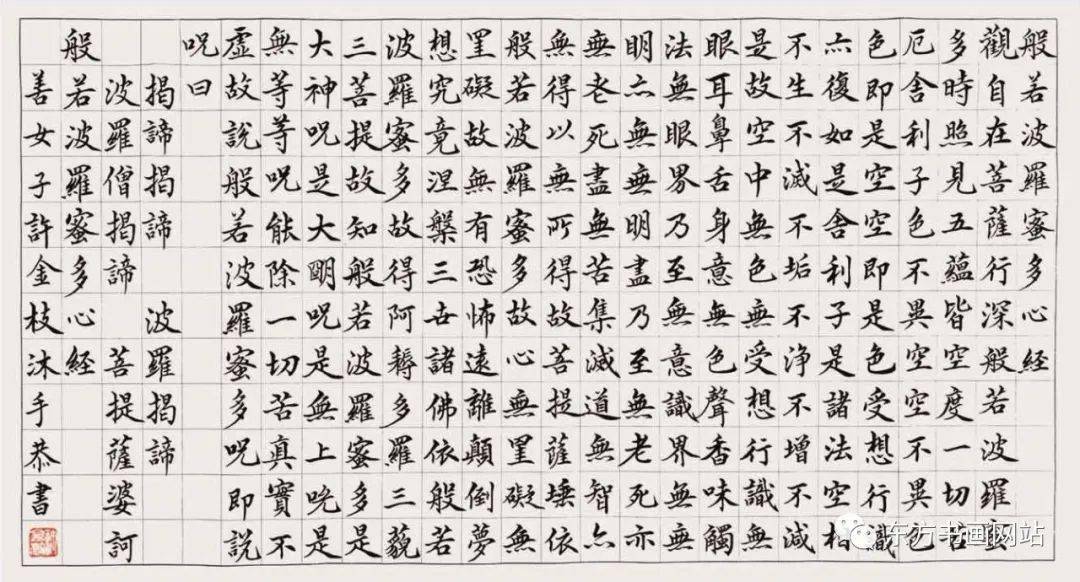 般若波羅蜜多心経
觀自在菩薩行深般若波羅蜜
多時照見五蘊皆空度一切苦
厄舍利子色不異空空不異色
色即是空空即是色受想行識
亦復如是舍利子是諸法空相
不生不滅不垢不净不增不減
是故空中無色無受想行識無
眼耳鼻舌身意無色聲香味觸
法無眼界乃至無意識界無無
明亦無無明盡乃至無老死亦
無老死盡無苦集滅道無智亦
無得以無所得故菩提薩埵依
般若波羅蜜多故心無罣礙無
罣礙故無有恐怖遠離顛倒夢
想究竟涅槃三世諸佛依般若
波羅蜜多故得阿耨多羅三藐
三菩提故知般若波羅蜜多是
大神呪是大明呪是無上呪是
無等等呪能除一切苦真實不
虛故說般若波羅蜜多呪即說
呪曰
揭諦揭諦 波羅揭諦
波羅僧揭諦 菩提薩婆訶
般若波羅蜜多心経
善女子許金枝沐手恭書
东方书画网站